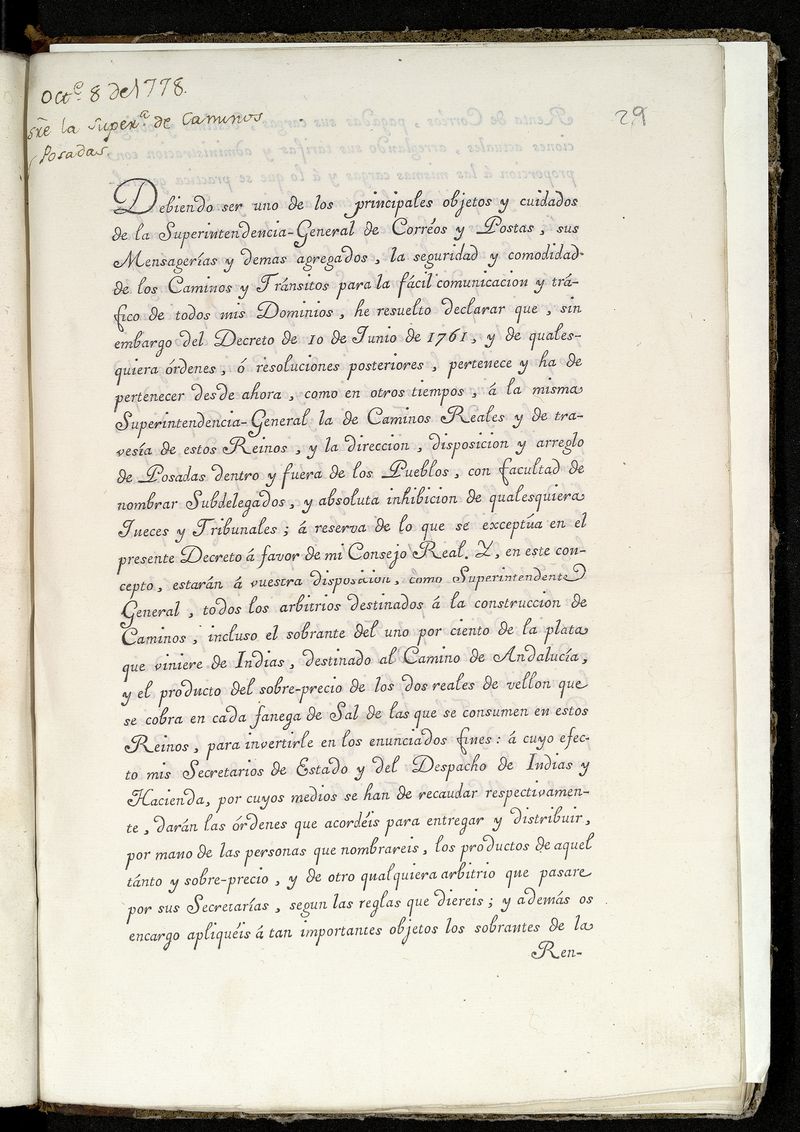 Oct.e 8 de 1778.
sre la Super.a de Caminos
y Posadas
29
Debiendo ser uno de los principales objetos y cuidados
de la Superintendencia-General de Corréos y Postas, sus
Mensagerías y demas agregados, la seguridad y comodidad
de los Caminos y Tránsitos para la fácil comunicacion y trá-
fico de todos mis Dominios, he resuelto declarar que, sin
embargo del Decreto de 10 de Junio de 1761, y de quales-
quiera órdenes, ó resoluciones posteriores, pertenece y ha de
pertenecer desde ahora, como en otros tiempos, á la misma
Superintendencia-General la de Caminos Reales y de tra-
vesía de estos Reinos, y la direccion, disposicion y arreglo
de Posadas dentro y fuera de los Pueblos, con facultad de
nombrar Subdelegados, y absoluta inhibicion de qualesquiera
Jueces y Tribunales; á reserva de lo que se exceptúa en el
presente Decreto á favor de mi Consejo Real. Y, en este con-
cepto, estarán á vuestra disposicion, como Superintendente
General, todos los arbitrios destinados á la construccion de
Caminos, incluso el sobrante del uno por ciento de la plata
que viniere de Indias, destinado al Camino de Andalucía,
y el producto del sobre-precio de los dos reales de vellon que
se cobra en cada fanega de Sal de las que se consumen en estos
Reinos, para invertirle en los enunciados fines: á cuyo efec-
to mis Secretarios de Estado y del Despacho de Indias y
Hacienda, por cuyos medios se han de recaudar respectivamen-
te, darán las órdenes que acordéis para entregar y distribuir,
por mano de las personas que nombrareis, los productos de aquel
tánto y sobre-precio, y de otro qualquiera arbitrio que pasare
por sus Secretarías, segun las reglas que diereis; y además os
encargo apliquéis á tan importantes objetos los sobrantes de la
Ren-